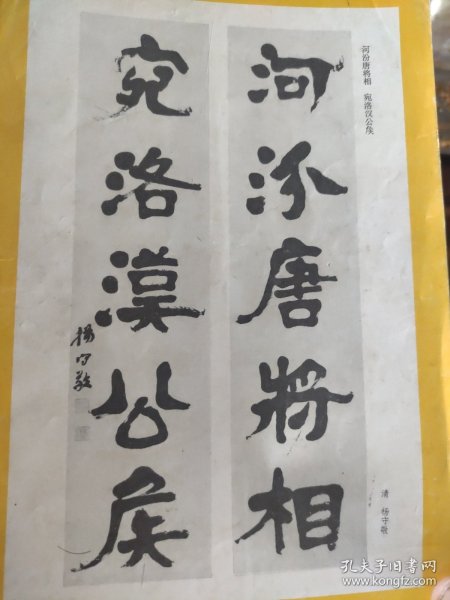 河汾唐将相 宛洛汉公矦
河汾唐將相
宛洛漢公矦
楊守敬
清 杨守敬
孔夫子旧书网
www.kongfz.com